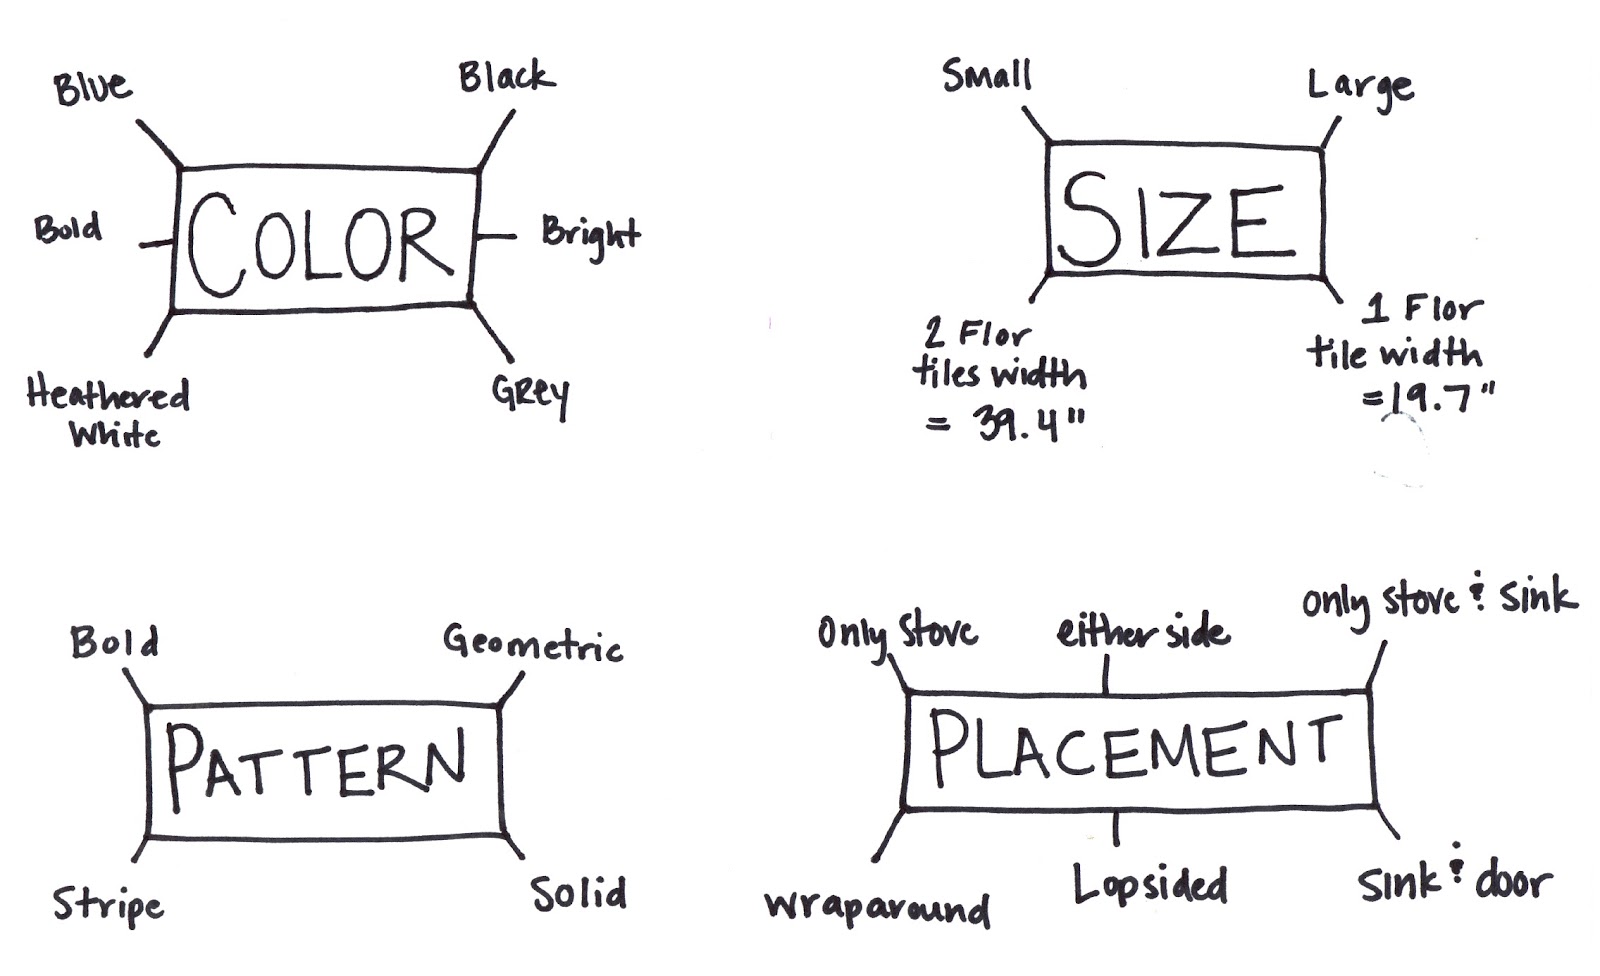 Blue
Black
Bold
COLOR
Bright
Heathered
White
GREY
Small
Large
SIZE
2 Flor
tiles width
= 39.4"
1 Flor
tile width
=19.7"
Bold
Geometric
PATTERN
Stripe
Solid
Only Stove
either side
only stove & Sink
PLACEMENT
wraparound
Lopsided
Sink & door